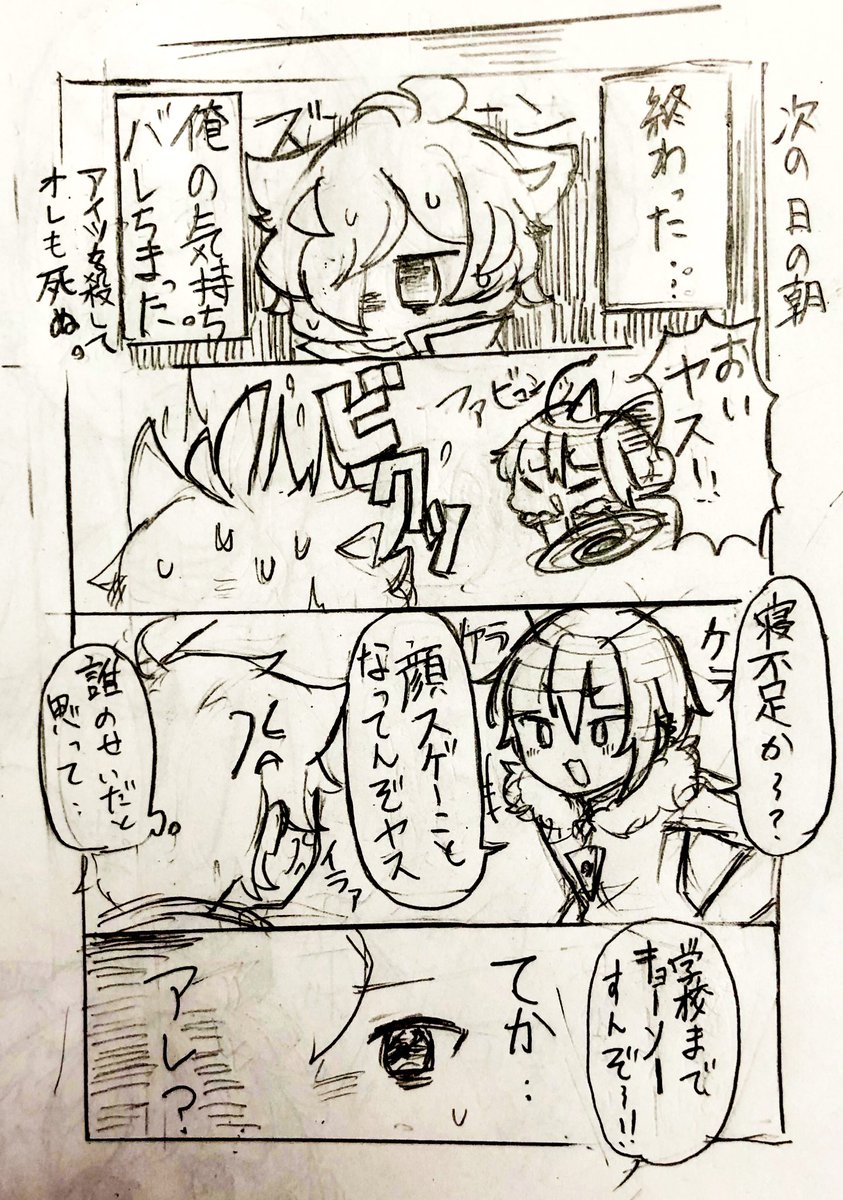 次の日の朝
終わった…
ズーン
俺の気持ち
バレちまった。
アイツを殺して
オレも死ぬ。
おい
ヤス!!
ファビュン
ビクッ
寝不足か〜?
ケラ
ケラ
顔スゲーこと
なってんぞヤス
イラァ
誰のせいだと
思って‥
学校まで
キョーソー
すんぞ〜!!
てか‥
アレ?